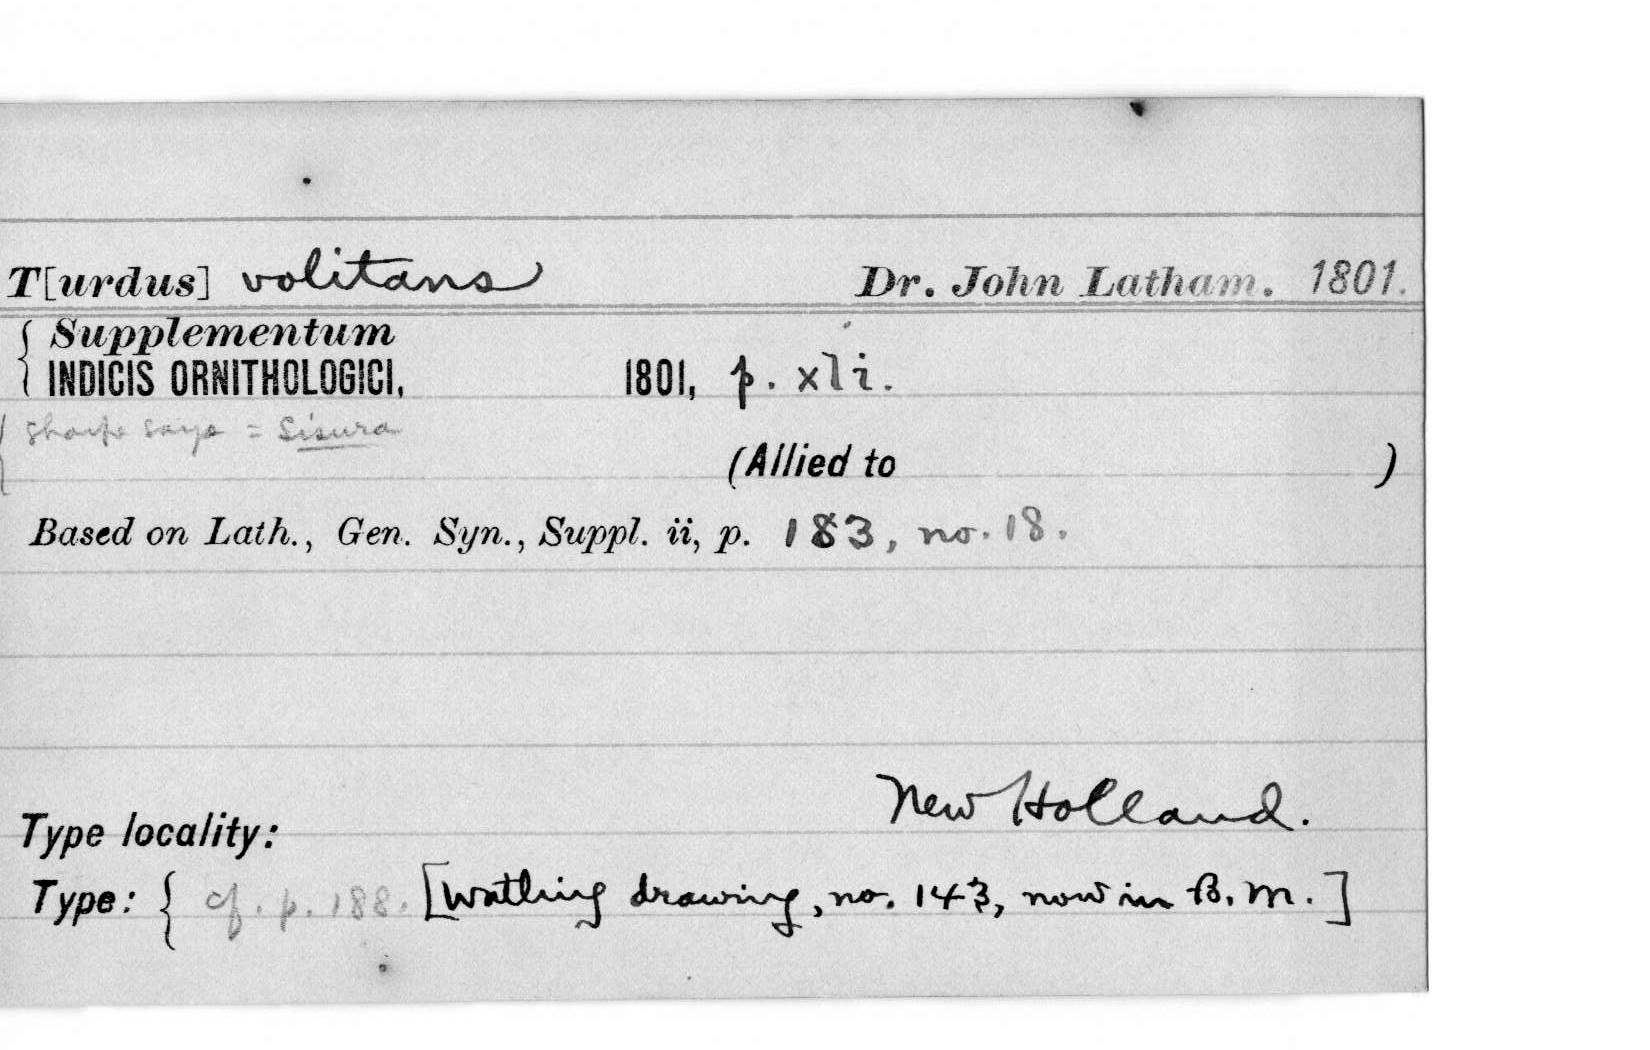 T[urdus] volitans Dr. John Latham. 1801.
{ Supplementum
INDICIS ORNITHOLOGICI, 1801, p. xli.
Sharpe says = Sisura
(Allied to )
Based on Lath., Gen. Syn., Suppl. ii, p. 183, no. 18.
New Holland.
Type locality:
Type: { cf. p. 188. [Watling drawing, no. 143, now in B. M.]